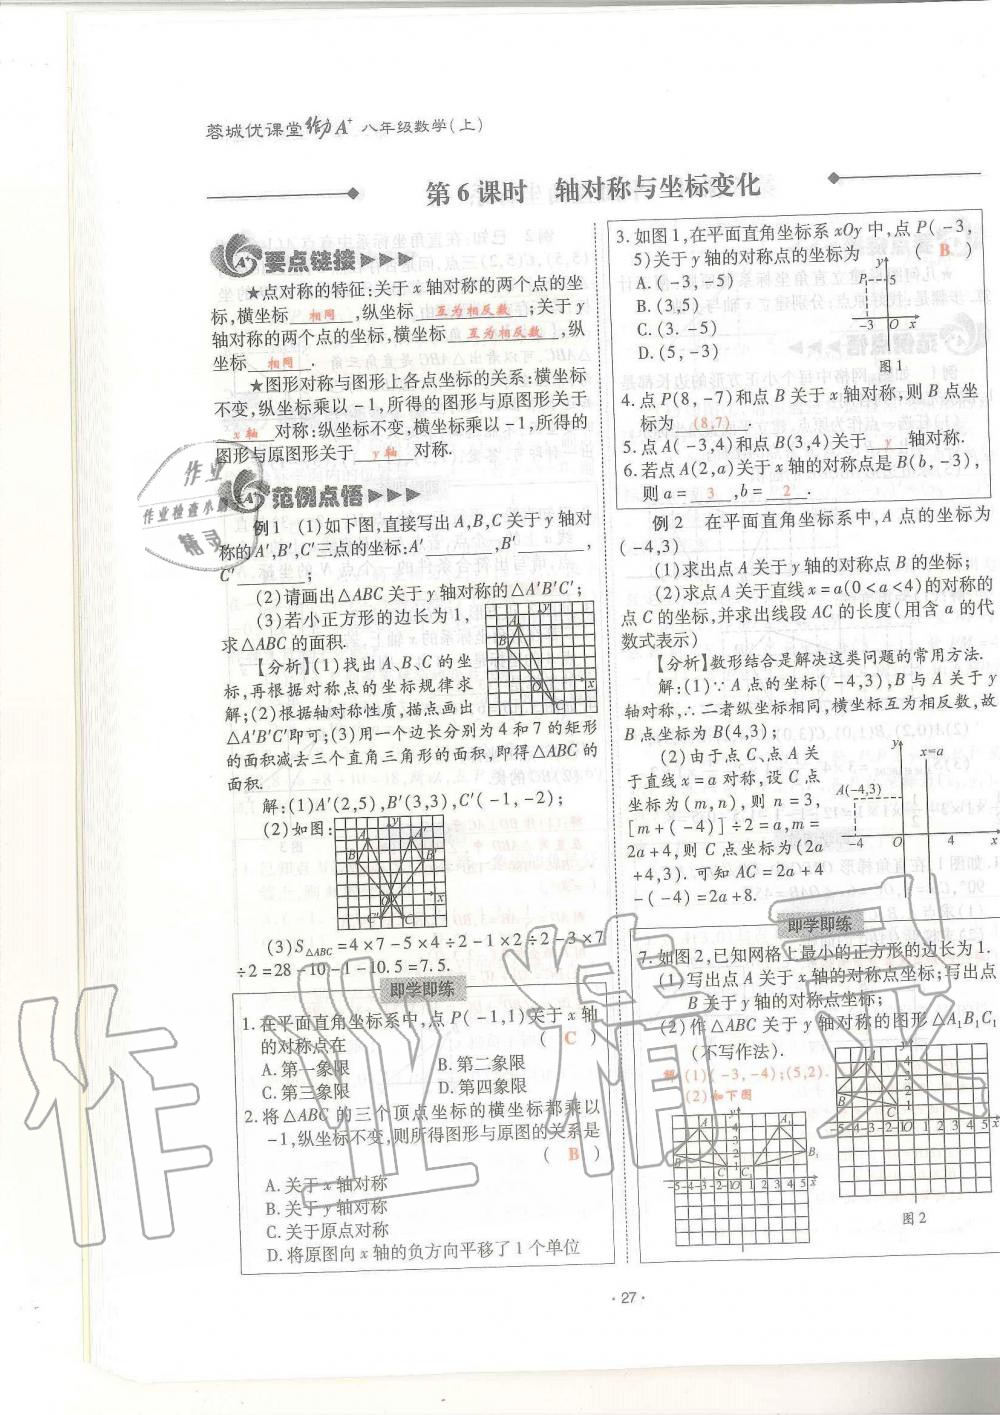 蓉城优课堂 给力A+ 八年级数学(上)
第6课时 轴对称与坐标变化
A+ 要点链接
★点对称的特征:关于x轴对称的两个点的坐
标,横坐标 相同 ,纵坐标 互为相反数 ;关于y
轴对称的两个点的坐标,横坐标 互为相反数 ,纵
坐标 相同 .
★图形对称与图形上各点坐标的关系:横坐标
不变,纵坐标乘以-1,所得的图形与原图形关于
x轴 对称;纵坐标不变,横坐标乘以-1,所得的
图形与原图形关于 y轴 对称.
A+ 范例点悟
例1 (1)如下图,直接写出A,B,C关于y轴对
称的A′,B′,C′三点的坐标:A′ ,B′ ,
C′ ;
(2)请画出△ABC关于y轴对称的△A′B′C′;
(3)若小正方形的边长为1,
求△ABC的面积.
【分析】(1)找出A、B、C的坐
标,再根据对称点的坐标规律求
解;(2)根据轴对称性质,描点画出
△A′B′C′即可;(3)用一个边长分别为4和7的矩形
的面积减去三个直角三角形的面积,即得△ABC的
面积.
y
A
B
O
x
C
解:(1)A′(2,5),B′(3,3),C′(-1,-2);
(2)如图:
y
A A′
B B′
O x
C′ C
(3)S△ABC=4×7-5×4÷2-1×2÷2-3×7
÷2=28-10-1-10.5=7.5.
即学即练
1.在平面直角坐标系中,点P(-1,1)关于x轴
的对称点在 ( C )
A.第一象限 B.第二象限
C.第三象限 D.第四象限
2.将△ABC的三个顶点坐标的横坐标都乘以
-1,纵坐标不变,则所得图形与原图的关系是
( B )
A.关于x轴对称
B.关于y轴对称
C.关于原点对称
D.将原图向x轴的负方向平移了1个单位
3.如图1,在平面直角坐标系xOy中,点P(-3,
5)关于y轴的对称点的坐标为 ( B )
A.(-3,-5)
B.(3,5)
C.(3.-5)
D.(5,-3)
y
P 5
-3 O x
图1
4.点P(8,-7)和点B关于x轴对称,则B点坐
标为 (8,7) .
5.点A(-3,4)和点B(3,4)关于 y 轴对称.
6.若点A(2,a)关于x轴的对称点是B(b,-3),
则a= 3 ,b= 2 .
例2 在平面直角坐标系中,A点的坐标为
(-4,3)
(1)求出点A关于y轴的对称点B的坐标;
(2)求点A关于直线x=a(0<a<4)的对称的
点C的坐标,并求出线段AC的长度(用含a的代
数式表示)
【分析】数形结合是解决这类问题的常用方法.
解:(1)∵A点的坐标(-4,3),B与A关于y
轴对称,∴二者纵坐标相同,横坐标互为相反数,故
B点坐标为B(4,3);
(2)由于点C、点A关
于直线x=a对称,设C点
坐标为(m,n),则n=3,
[m+(-4)]÷2=a,m=
2a+4,则C点坐标为(2a
+4,3).可知AC=2a+4
-(-4)=2a+8.
y x=a
A(-4,3)
-4 O 4 x
即学即练
7.如图2,已知网格上最小的正方形的边长为1.
(1)写出点A关于x轴的对称点坐标;写出点
B关于y轴的对称点坐标;
(2)作△ABC关于y轴对称的图形△A1B1C1
(不写作法).
解:(1)(-3,-4);(5,2).
(2)如下图
图2
· 27 ·
作业
作业检查小
精灵
作业精灵